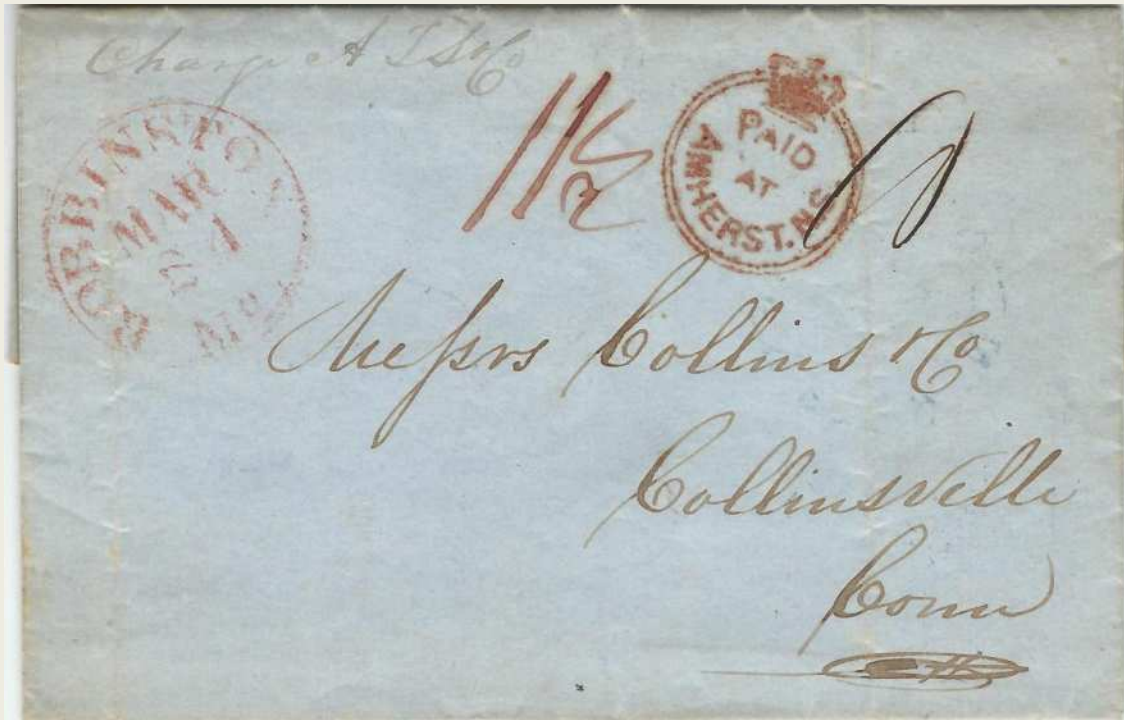 Charge A
ROBBINSTON
MAR
24
Me.
11½
PAID
AT
AMHERST.N.S
Messrs Collins & Co
Collinsville
Conn